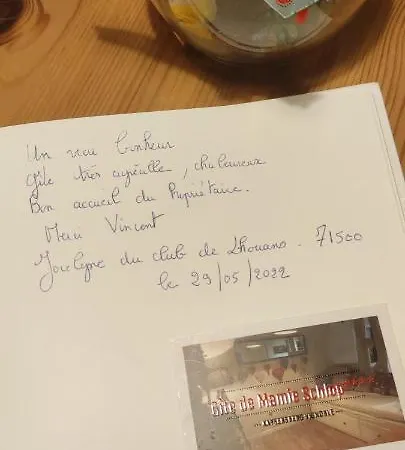 Un vrai bonheur
gîte très agréable, chaleureux
Bon accueil du Propriétaire.
Merci Vincent
Jocelyne du club de Lhouans. 71500
le 29/05/2022
Gite de Mamie Schlop
KAYSERSBERG VIGNOBLE